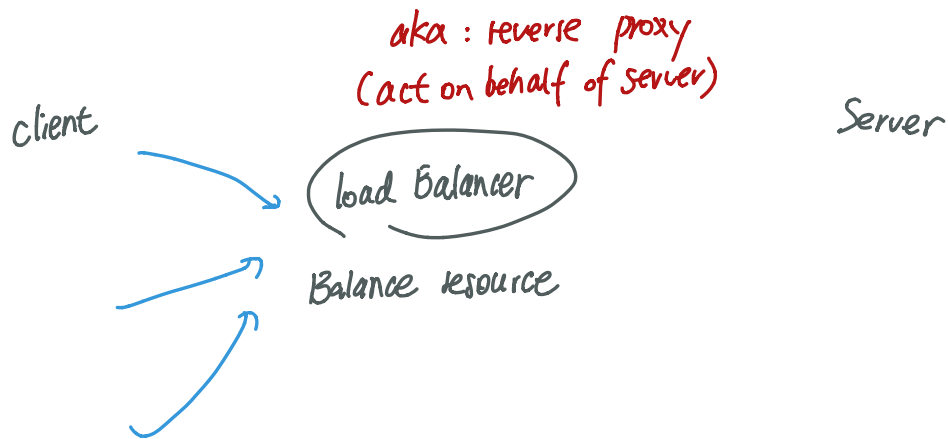 aka : reverse proxy
(act on behalf of server)
client
Server
load Balancer
Balance resource